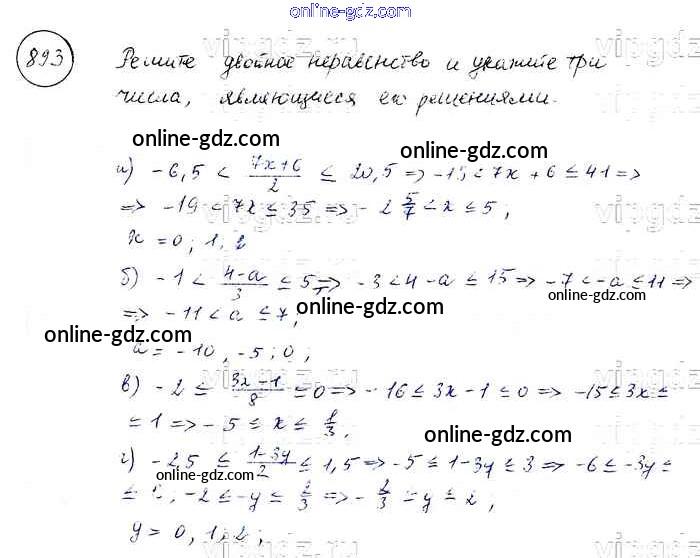 online-gdz.com
893
Решите двойное неравенство и укажите три
числа, являющиеся его решениями.
online-gdz.com
online-gdz.com
а) -6,5 < (7x+6)/2 ≤ 20,5 => -13 < 7x + 6 ≤ 41 =>
=> -19 < 7x ≤ 35 => -2 5/7 < x ≤ 5;
x = 0; 1, 2
б) -1 < (4-a)/3 ≤ 5 => -3 < 4-a ≤ 15 => -7 < -a ≤ 11 =>
online-gdz.com
online-gdz.com
=> -11 < a ≤ 7;
online-gdz.com
a = -10, -5; 0;
в) -2 ≤ (3x-1)/8 ≤ 0 => -16 ≤ 3x-1 ≤ 0 => -15 ≤ 3x ≤
online-gdz.com
≤ 1 => -5 ≤ x ≤ 1/3,
online-gdz.com
г) -2,5 ≤ (1-3y)/2 ≤ 1,5 => -5 ≤ 1-3y ≤ 3 => -6 ≤ -3y ≤
≤ 2; -2 ≤ -y ≤ 2/3 => -2/3 ≤ y ≤ 2;
online-gdz.com
y = 0, 1, 2;
online-gdz.com